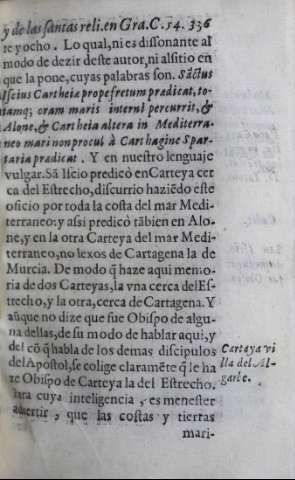 y de las santas reli.en Gra.C.54. 336
te y ocho. Lo qual, ni es dissonante al
modo de dezir deste autor, ni al sitio en
que la pone, cuyas palabras son. Sãctus
Escius Cartheia prope fretum pradicat, to-
tamq; oram maris interni percurrit, &
Alone, & Cartheia altera in Mediterra-
neo mari non procul à Carthagine Spar-
taria pradicat. Y en nuestro lenguaje
vulgar. Sã Iscio predicò en Carteya cer
ca del Estrecho, discurrio haziẽdo este
oficio por toda la costa del mar Medi-
terraneo: y assi predicò tãbien en Alo-
ne, y en la otra Carteya del mar Medi-
terraneo, no lexos de Cartagena la de
Murcia. De modo q̃ haze aqui memo-
ria de dos Carteyas, la vna cerca del Es-
trecho, y la otra, cerca de Cartagena. Y
aũque no dize que fue Obispo de algu-
na dellas, de su modo de hablar aqui, y
del cõ q̃ habla de los demas discipulos
del Apostol, se colige claramẽte q̃ le ha
ze Obispo de Carteya la del Estrecho.
Para cuya inteligencia, es menester
advertir, que las costas y tierras
mari-
Carteya vi
lla del Al-
garbe.